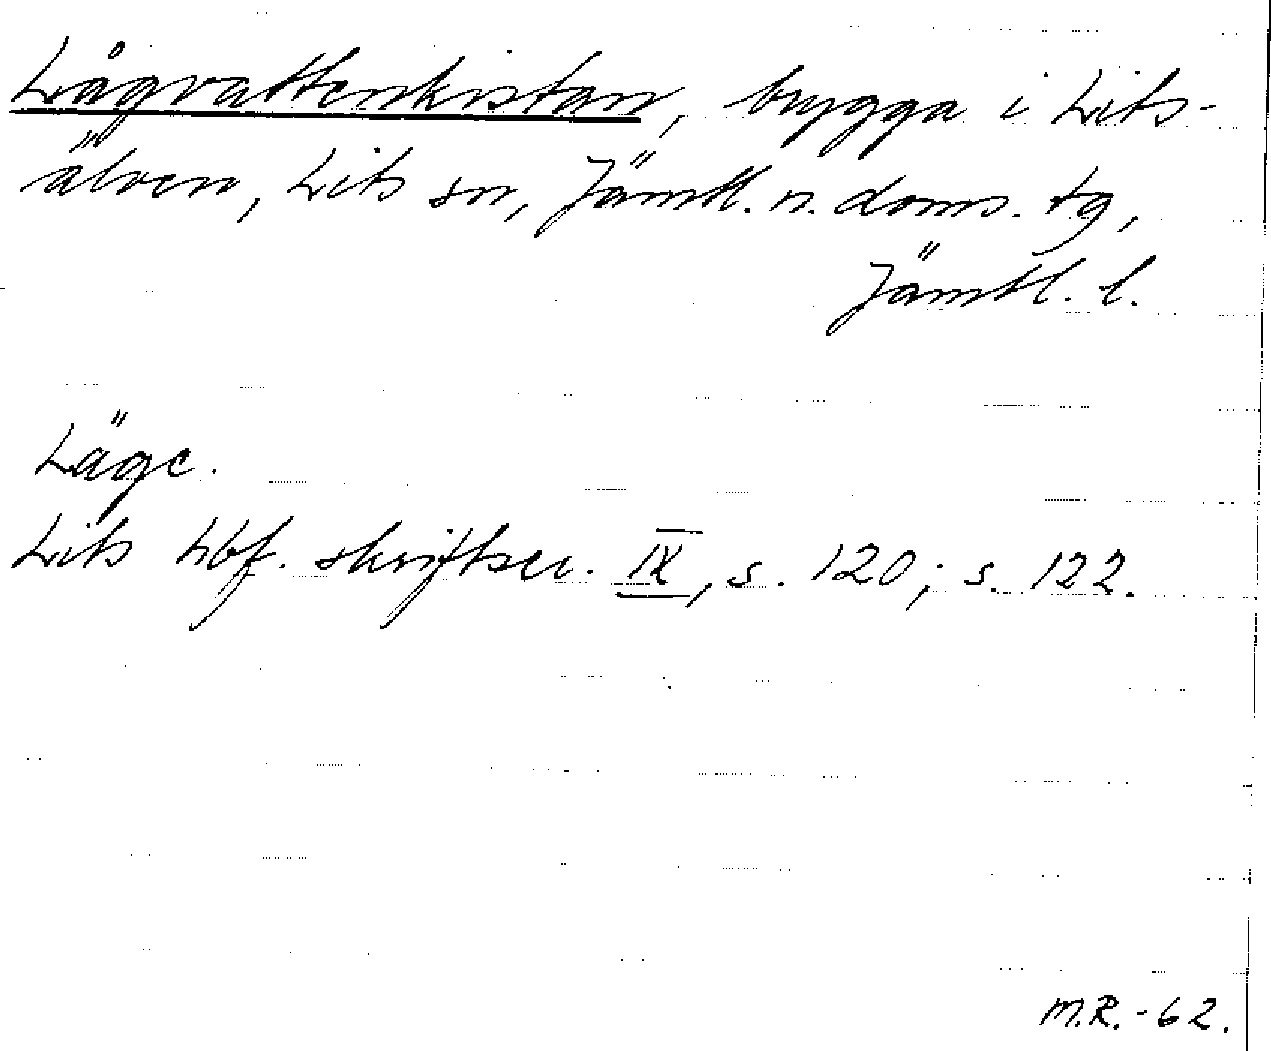 Lågvattenkistan, brygga i Lits-
älven, Lits sn, Jämtl. n. doms. tg,
Jämtl. l.
Läge.
Lits hbf. skriftser. IX, s. 120; s. 122.
M.R.-62.